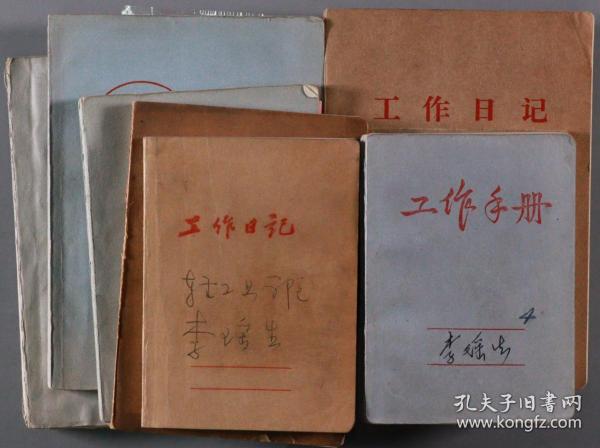 工作日记
工作日记
轻工业部
李瑶生
工作手册
4
李瑶生
孔夫子旧书网
www.kongfz.com